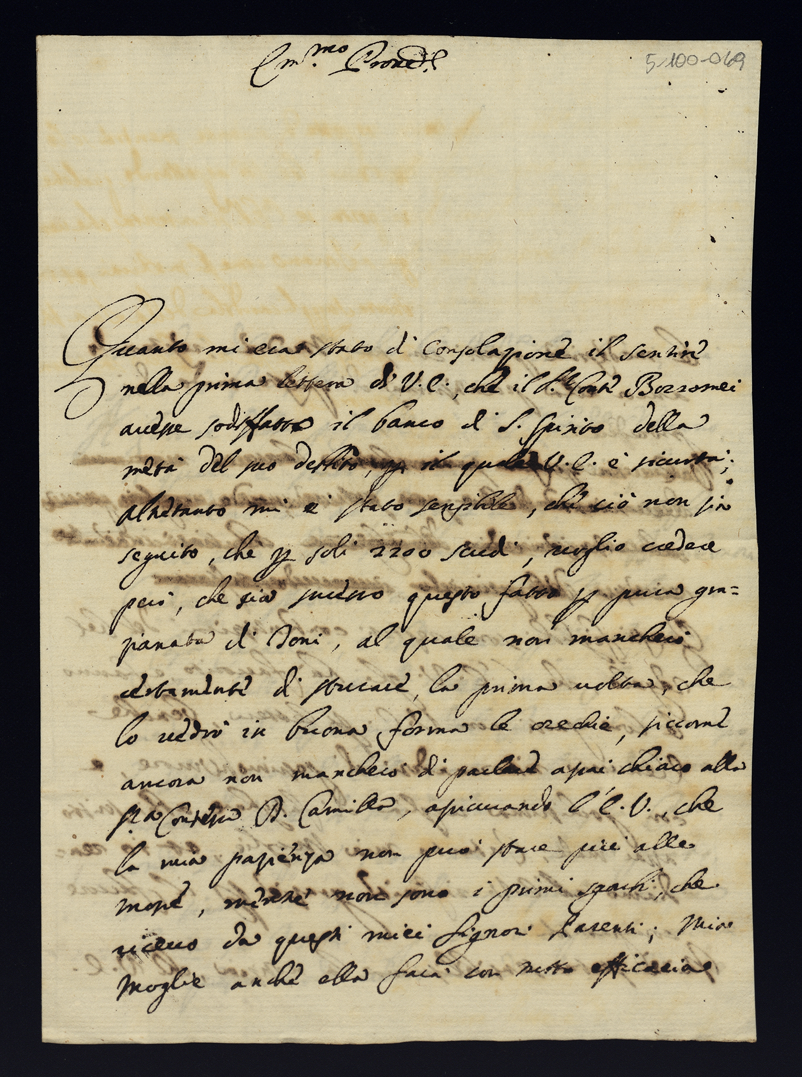 5-100-069
Em.mo Proned.e
Quanto mi era stato di Consolazione il sentire
nella prima lettera di V.E., che il S.r Conte Borromei
avesse sodisfatto il banco di S. Spirito della
metà del suo debito, p il quale V.E. è sicurtà;
altretanto mi è stato sensibile, che ciò non sia
seguito, che p soli 2200 scudi, voglio credere
però, che sia successo questo fatto p pura
di Boni, al quale non mancherò
certamente di stuccare, la prima volta, che
lo vedrò in buona forma le orechie, siccome
ancora non mancherò di parlare assai chiaro alla
S.ra Contessa D. Camilla, assicurando l'E.V., che
la mia pazienza non può stare più alle
mosse, mentre non sono i primi che
ricevo da questi miei Signori Parenti; Mia
Moglie anche ella farà con tutta efficacia